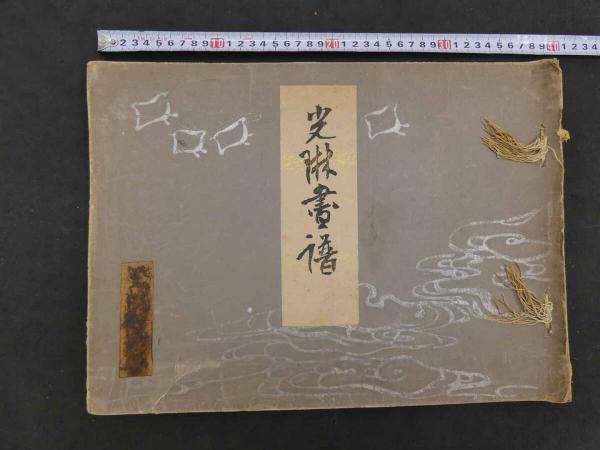 2 3 4 5 6 7 8 9 10 1 2 3 4 5 6 7 8 9 20 1 2 3 4 5 6 7 8 9 30 1 2 3 4 5 6 7 8 9 40 1 2 3 4
光琳畫譜